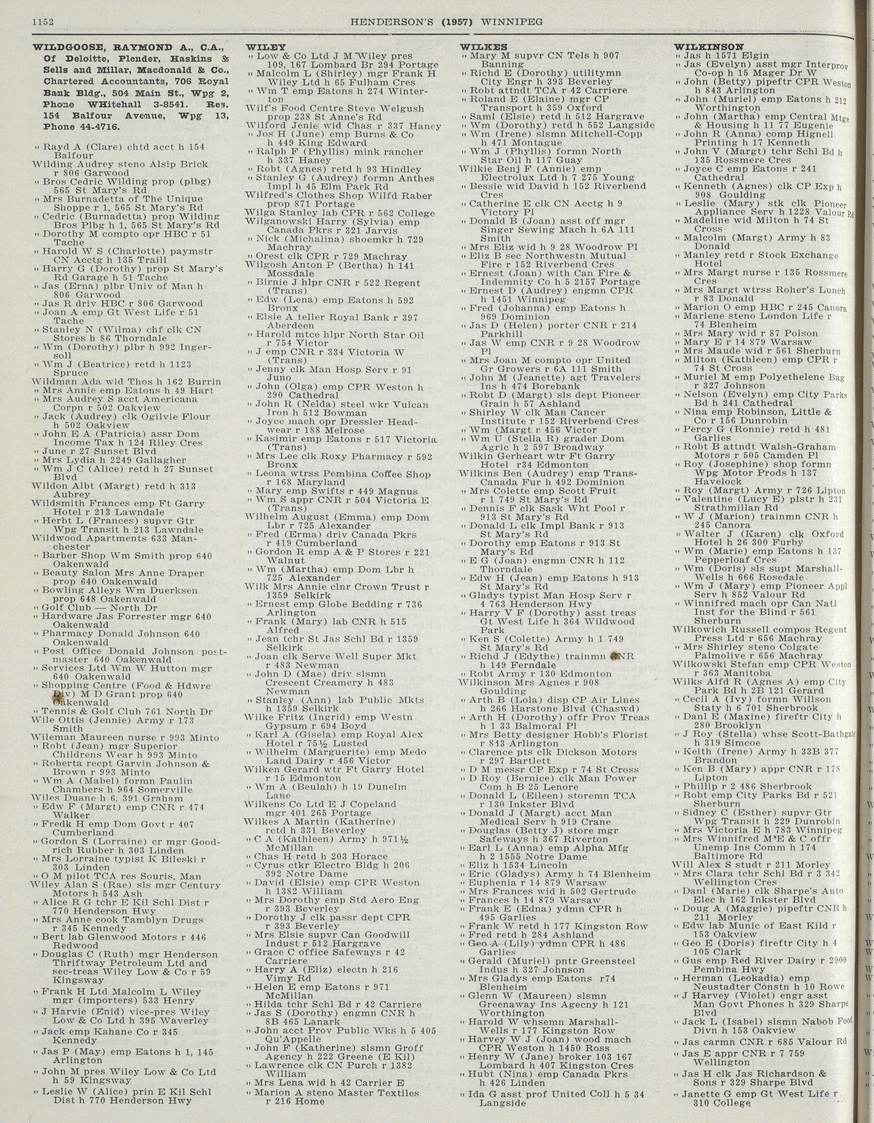 1152
HENDERSON'S (1957) WINNIPEG
WILDGOOSE, RAYMOND A., C.A.,
Of Deloitte, Plender, Haskins &
Sells and Millar, Macdonald & Co.,
Chartered Accountants, 706 Royal
Bank Bldg., 504 Main St., Wpg 2,
Phone WHitehall 3-8541. Res.
154 Balfour Avenue, Wpg 13,
Phone 44-4716.
" Rayd A (Clare) chtd acct h 154
Balfour
Wilding Audrey steno Alsip Brick
r 806 Garwood
" Bros Cedric Wilding prop (plbg)
565 St Mary's Rd
" Mrs Burnadetta of The Unique
Shoppe r 1, 565 St Mary's Rd
" Cedric (Burnadetta) prop Wilding
Bros Plbg h 1, 565 St Mary's Rd
" Dorothy M compto opr HBC r 51
Tache
" Harold W S (Charlotte) paymstr
CN Acctg h 135 Traill
" Harry G (Dorothy) prop St Mary's
Rd Garage h 51 Tache
" Jas (Erna) plbr Univ of Man h
806 Garwood
" Jas R driv HBC r 806 Garwood
" Joan A emp Gt West Life r 51
Tache
" Stanley N (Wilma) chf clk CN
Stores h 86 Thorndale
" Wm (Dorothy) plbr h 992 Inger-
soll
" Wm J (Beatrice) retd h 1123
Spruce
Wildman Ada wid Thos h 162 Burrin
" Mrs Annie emp Eatons h 49 Hart
" Mrs Audrey S acct Americana
Corpn r 502 Oakview
" Jack (Audrey) clk Ogilvie Flour
h 502 Oakview
" John E A (Patricia) assr Dom
Income Tax h 124 Riley Cres
" June r 27 Sunset Blvd
" Mrs Lydia h 2249 Gallagher
" Wm J C (Alice) retd h 27 Sunset
Blvd
Wildon Albt (Margt) retd h 313
Aubrey
Wildsmith Frances emp Ft Garry
Hotel r 213 Lawndale
" Herbt L (Frances) supvr Gtr
Wpg Transit h 213 Lawndale
Wildwood Apartments 633 Man-
chester
" Barber Shop Wm Smith prop 640
Oakenwald
" Beauty Salon Mrs Anne Draper
prop 640 Oakenwald
" Bowling Alleys Wm Duerksen
prop 648 Oakenwald
" Golf Club — North Dr
" Hardware Jas Forrester mgr 640
Oakenwald
" Pharmacy Donald Johnson 640
Oakenwald
" Post Office Donald Johnson post-
master 640 Oakenwald
" Services Ltd Wm W Hutton mgr
640 Oakenwald
" Shopping Centre (Food & Hdwre
Div) M D Grant prop 640
Oakenwald
" Tennis & Golf Club 761 North Dr
Wile Ottis (Jennie) Army r 173
Smith
Wileman Maureen nurse r 993 Minto
" Robt (Jean) mgr Superior
Childrens Wear h 993 Minto
" Roberta recpt Garvin Johnson &
Brown r 993 Minto
" Wm A (Mabel) formn Paulin
Chambers h 964 Somerville
Wiles Duane h 6, 391 Graham
" Edw F (Margt) emp CNR r 474
Walker
" Fredk H emp Dom Govt r 407
Cumberland
" Gordon S (Lorraine) cr mgr Good-
rich Rubber h 303 Linden
" Mrs Lorraine typist K Bileski r
303 Linden
" O M pilot TCA res Souris, Man
Wiley Alan S (Rae) sls mgr Century
Motors h 543 Ash
" Alice R G tchr E Kil Schl Dist r
770 Henderson Hwy
" Mrs Anne cook Tamblyn Drugs
r 345 Kennedy
" Bert lab Glenwood Motors r 446
Redwood
" Douglas C (Ruth) mgr Henderson
Thriftway Petroleum Ltd and
sec-treas Wiley Low & Co r 59
Kingsway
" Frank H Ltd Malcolm L Wiley
mgr (importers) 533 Henry
" J Harvie (Enid) vice-pres Wiley
Low & Co Ltd h 395 Waverley
" Jack emp Kahane Co r 345
Kennedy
" Jas P (May) emp Eatons h 1, 145
Arlington
" John M pres Wiley Low & Co Ltd
h 59 Kingsway
" Leslie W (Alice) prin E Kil Schl
Dist h 770 Henderson Hwy
WILEY
" Low & Co Ltd J M Wiley pres
109, 167 Lombard Br 294 Portage
" Malcolm L (Shirley) mgr Frank H
Wiley Ltd h 65 Fulham Cres
" Wm T emp Eatons h 274 Winter-
ton
Wilf's Food Centre Steve Welgush
prop 238 St Anne's Rd
Wilford Jenie wid Chas r 337 Haney
" Jos H (June) emp Burns & Co
h 449 King Edward
" Ralph F (Phyllis) mink rancher
h 337 Haney
" Robt (Agnes) retd h 93 Hindley
" Stanley G (Audrey) formn Anthes
Impl h 45 Elm Park Rd
Wilfred's Clothes Shop Wilfd Raber
prop 871 Portage
Wilga Stanley lab CPR r 562 College
Wilganowski Harry (Sylvia) emp
Canada Pkrs r 321 Jarvis
" Nick (Michalina) shoemkr h 729
Machray
" Orest clk CPR r 729 Machray
Wilgosh Anton P (Bertha) h 141
Mossdale
" Birnie J hlpr CNR r 522 Regent
(Trans)
" Edw (Lena) emp Eatons h 592
Bronx
" Elsie A teller Royal Bank r 397
Aberdeen
" Harold mtce hlpr North Star Oil
r 754 Victor
" J emp CNR r 334 Victoria W
(Trans)
" Jenny clk Man Hosp Serv r 91
Juno
" John (Olga) emp CPR Weston h
290 Cathedral
" John R (Nelda) steel wkr Vulcan
Iron h 512 Bowman
" Joyce mach opr Dressler Head-
wear r 188 Melrose
" Kasimir emp Eatons r 517 Victoria
(Trans)
" Mrs Lee clk Roxy Pharmacy r 592
Bronx
" Leona wtrss Pembina Coffee Shop
r 168 Maryland
" Mary emp Swifts r 449 Magnus
" Wm S appr CNR r 504 Victoria E
(Trans)
Wilhelm August (Emma) emp Dom
Lbr r 725 Alexander
" Fred (Erma) driv Canada Pkrs
r 419 Cumberland
" Gordon R emp A & P Stores r 221
Walnut
" Wm (Martha) emp Dom Lbr h
725 Alexander
Wilk Mrs Annie clnr Crown Trust r
1359 Selkirk
" Ernest emp Globe Bedding r 736
Arlington
" Frank (Mary) lab CNR h 515
Alfred
" Jean tchr St Jas Schl Bd r 1359
Selkirk
" Joan clk Serve Well Super Mkt
r 483 Newman
" John D (Mae) driv slsmn
Crescent Creamery h 483
Newman
" Stanley (Ann) lab Public Mkts
h 1359 Selkirk
Wilke Fritz (Ingrid) emp Westn
Gypsum r 694 Boyd
" Karl A (Gisela) emp Royal Alex
Hotel r 75½ Lusted
" Wilhelm (Marguerite) emp Medo
Land Dairy r 456 Victor
Wilken Gerard wtr Ft Garry Hotel
r 15 Edmonton
" Wm A (Beulah) h 19 Dunelm
Lane
Wilkens Co Ltd E J Copeland
mgr 401 265 Portage
Wilkes A Martin (Katherine)
retd h 331 Beverley
" C A (Kathleen) Army h 971½
McMillan
" Chas H retd h 203 Horace
" Cyrus ctkr Electro Bldg h 206
392 Notre Dame
" David (Elsie) emp CPR Weston
h 1382 William
" Mrs Dorothy emp Std Aero Eng
r 393 Beverley
" Dorothy J clk passr dept CPR
r 393 Beverley
" Mrs Elsie supvr Can Goodwill
Indust r 512 Hargrave
" Grace C office Safeways r 42
Carriere
" Harry A (Eliz) electn h 216
Vimy Rd
" Helen E emp Eatons r 971
McMillan
" Hilda tchr Schl Bd r 42 Carriere
" Jas S (Dorothy) engmn CNR h
8B 465 Lanark
" John acct Prov Public Wks h 5 405
Qu'Appelle
" John F (Katherine) slsmn Groff
Agency h 222 Greene (E Kil)
" Lawrence clk CN Purch r 1382
William
" Mrs Lena wid h 42 Carrier E
" Marion A steno Master Textiles
r 216 Home
WILKES
" Mary M supvr CN Tels h 907
Banning
" Richd E (Dorothy) utilitymn
City Engr h 393 Beverley
" Robt attndt TCA r 42 Carriere
" Roland E (Elaine) mgr CP
Transport h 359 Oxford
" Saml (Elsie) retd h 512 Hargrave
" Wm (Dorothy) retd h 552 Langside
" Wm (Irene) slsmn Mitchell-Copp
h 471 Montague
" Wm J (Phyllis) formn North
Star Oil h 117 Guay
Wilkie Benj F (Annie) emp
Electrolux Ltd h 7 275 Young
" Bessie wid David h 152 Riverbend
Cres
" Catherine E clk CN Acctg h 9
Victory Pl
" Donald B (Joan) asst off mgr
Singer Sewing Mach h 6A 111
Smith
" Mrs Eliz wid h 9 28 Woodrow Pl
" Eliz B sec Northwestn Mutual
Fire r 152 Riverbend Cres
" Ernest (Joan) with Can Fire &
Indemnity Co h 5 2157 Portage
" Ernest D (Audrey) engmn CPR
h 1451 Winnipeg
" Fred (Johanna) emp Eatons h
969 Dominion
" Jas D (Helen) porter CNR r 214
Parkhill
" Jas W emp CNR r 9 28 Woodrow
Pl
" Mrs Joan M compto opr United
Gr Growers r 6A 111 Smith
" John M (Jeanette) agt Travelers
Ins h 474 Borebank
" Robt D (Margt) sls dept Pioneer
Grain h 57 Ashland
" Shirley W clk Man Cancer
Institute r 152 Riverbend Cres
" Wm (Margt) r 456 Victor
" Wm U (Stella R) grader Dom
Agric h 2 597 Broadway
Wilkin Gerheart wtr Ft Garry
Hotel r34 Edmonton
Wilkins Ben (Audrey) emp Trans-
Canada Fur h 492 Dominion
" Mrs Colette emp Scott Fruit
r 1 749 St Mary's Rd
" Dennis F clk Sask Wht Pool r
913 St Mary's Rd
" Donald L clk Impl Bank r 913
St Mary's Rd
" Dorothy emp Eatons r 913 St
Mary's Rd
" E G (Joan) engmn CNR h 112
Thorndale
" Edw H (Jean) emp Eatons h 913
St Mary's Rd
" Gladys typist Man Hosp Serv r
4 763 Henderson Hwy
" Harry V F (Dorothy) asst treas
Gt West Life h 364 Wildwood
Park
" Ken S (Colette) Army h 1 749
St Mary's Rd
" Richd J (Edythe) trainmn CNR
h 149 Ferndale
" Robt Army r 130 Edmonton
Wilkinson Mrs Agnes r 908
Goulding
" Arth B (Lola) disp CP Air Lines
h 266 Harstone Blvd (Chaswd)
" Arth H (Dorothy) offr Prov Treas
h 1 33 Balmoral Pl
" Mrs Betty designer Hobb's Florist
r 843 Arlington
" Clarence pts clk Dickson Motors
r 297 Bartlett
" D M messr CP Exp r 74 St Cross
" D Roy (Bernice) clk Man Power
Com h B 25 Lenore
" Donald L (Eileen) storemn TCA
r 130 Inkster Blvd
" Donald J (Margt) acct Man
Medical Serv h 919 Crane
" Douglas (Betty J) store mgr
Safeways h 367 Riverton
" Earl L (Anna) emp Alpha Mfg
h 2 1555 Notre Dame
" Eliz h 1534 Lincoln
" Eric (Gladys) Army h 74 Blenheim
" Euphenia r 14 879 Warsaw
" Mrs Frances wid h 502 Gertrude
" Frances h 14 879 Warsaw
" Frank E (Edna) ydmn CPR h
495 Garlies
" Frank W retd h 177 Kingston Row
" Fred retd h 284 Ashland
" Geo A (Lily) ydmn CPR h 486
Garlies
" Gerald (Muriel) pntr Greensteel
Indus h 327 Johnson
" Mrs Gladys emp Eatons r74
Blenheim
" Glenn W (Maureen) slsmn
Greenaway Ins Agecny h 121
Worthington
" Harold W whsemn Marshall-
Wells r 177 Kingston Row
" Harvey W J (Joan) wood mach
CPR Weston h 1450 Ross
" Henry W (Jane) broker 103 167
Lombard h 407 Kingston Cres
" Hubt (Nina) emp Canada Pkrs
h 426 Linden
" Ida G asst prof United Coll h 5 34
Langside
WILKINSON
" Jas h 1571 Elgin
" Jas (Evelyn) asst mgr Interprov
Co-op h 15 Mager Dr W
" John (Betty) pipeftr CPR Weston
h 843 Arlington
" John (Muriel) emp Eatons h 212
Worthington
" John (Martha) emp Central Mtge
& Housing h 11 77 Eugenie
" John R (Anna) comp Hignell
Printing h 17 Kenneth
" John V (Margt) tchr Schl Bd h
135 Rossmere Cres
" Joyce C emp Eatons r 241
Cathedral
" Kenneth (Agnes) clk CP Exp h
908 Goulding
" Leslie (Mary) stk clk Pioneer
Appliance Serv h 1228 Valour Rd
" Madeline wid Milton h 74 St
Cross
" Malcolm (Margt) Army h 83
Donald
" Manley retd r Stock Exchange
Hotel
" Mrs Margt nurse r 135 Rossmere
Cres
" Mrs Margt wtrss Roher's Lunch
r 83 Donald
" Marion O emp HBC r 245 Canora
" Marlene steno London Life r
74 Blenheim
" Mrs Mary wid r 87 Polson
" Mary E r 14 879 Warsaw
" Mrs Maude wid r 561 Sherburn
" Milton (Kathleen) emp CPR r
74 St Cross
" Muriel M emp Polyethelene Bag
r 327 Johnson
" Nelson (Evelyn) emp City Parks
Bd h 241 Cathedral
" Nina emp Robinson, Little &
Co r 156 Dunrobin
" Percy G (Ronnie) retd h 481
Garlies
" Robt B attndt Walsh-Graham
Motors r 505 Camden Pl
" Roy (Josephine) shop formn
Wpg Motor Prods h 137
Havelock
" Roy (Margt) Army r 726 Lipton
" Valentine (Lucy E) plstr h 231
Strathmillan Rd
" W J (Marion) trainmn CNR h
245 Canora
" Walter J (Karen) clk Oxford
Hotel h 26 300 Furby
" Wm (Marie) emp Eatons h 137
Pepperloaf Cres
" Wm (Doris) sls supt Marshall-
Wells h 666 Rosedale
" Wm J (Mary) emp Pioneer Appl
Serv h 852 Valour Rd
" Winnifred mach opr Can Natl
Inst for the Blind r 561
Sherburn
Wilkowich Russell compos Regent
Press Ltd r 656 Machray
" Mrs Shirley steno Colgate
Palmolive r 656 Machray
Wilkowski Stefan emp CPR Weston
r 363 Manitoba
Wilks Alfd R (Agnes A) emp City
Park Bd h 2B 121 Gerard
" Cecil A (Ivy) formn Willson
Staty h 6 701 Sherbrook
" Danl E (Maxine) fireftr City h
280 Brooklyn
" J Roy (Stella) whse Scott-Bathgate
h 319 Simcoe
" Keith (Irene) Army h 33B 377
Brandon
" Ken B (Mary) appr CNR r 178
Lipton
" Phillip r 2 486 Sherbrook
" Robt emp City Parks Bd r 521
Sherburn
" Sidney C (Esther) supvr Gtr
Wpg Transit h 229 Dunrobin
" Mrs Victoria E h 783 Winnipeg
" Mrs Winnifred M'E & C offr
Unemp Ins Comm h 174
Baltimore Rd
Will Alex S studt r 211 Morley
" Mrs Clara tchr Schl Bd r 3 342
Wellington Cres
" Danl (Marie) clk Sharpe's Auto
Elec h 162 Inkster Blvd
" Doug A (Maggie) pipeftr CNR h
211 Morley
" Edw lab Munic of East Kild r
153 Oakview
" Geo E (Doris) fireftr City h 4
105 Clark
" Gus emp Red River Dairy r 2900
Pembina Hwy
" Herman (Leokadia) emp
Neustadter Constn h 10 Rowe
" J Harvey (Violet) engr asst
Man Govt Phones h 329 Sharpe
Blvd
" Jack L (Isabel) slsmn Nabob Food
Divn h 153 Oakview
" Jas carmn CNR r 685 Valour Rd
" Jas E appr CNR r 7 759
Wellington
" Jas H clk Jas Richardson &
Sons r 329 Sharpe Blvd
" Janette G emp Gt West Life r
310 College